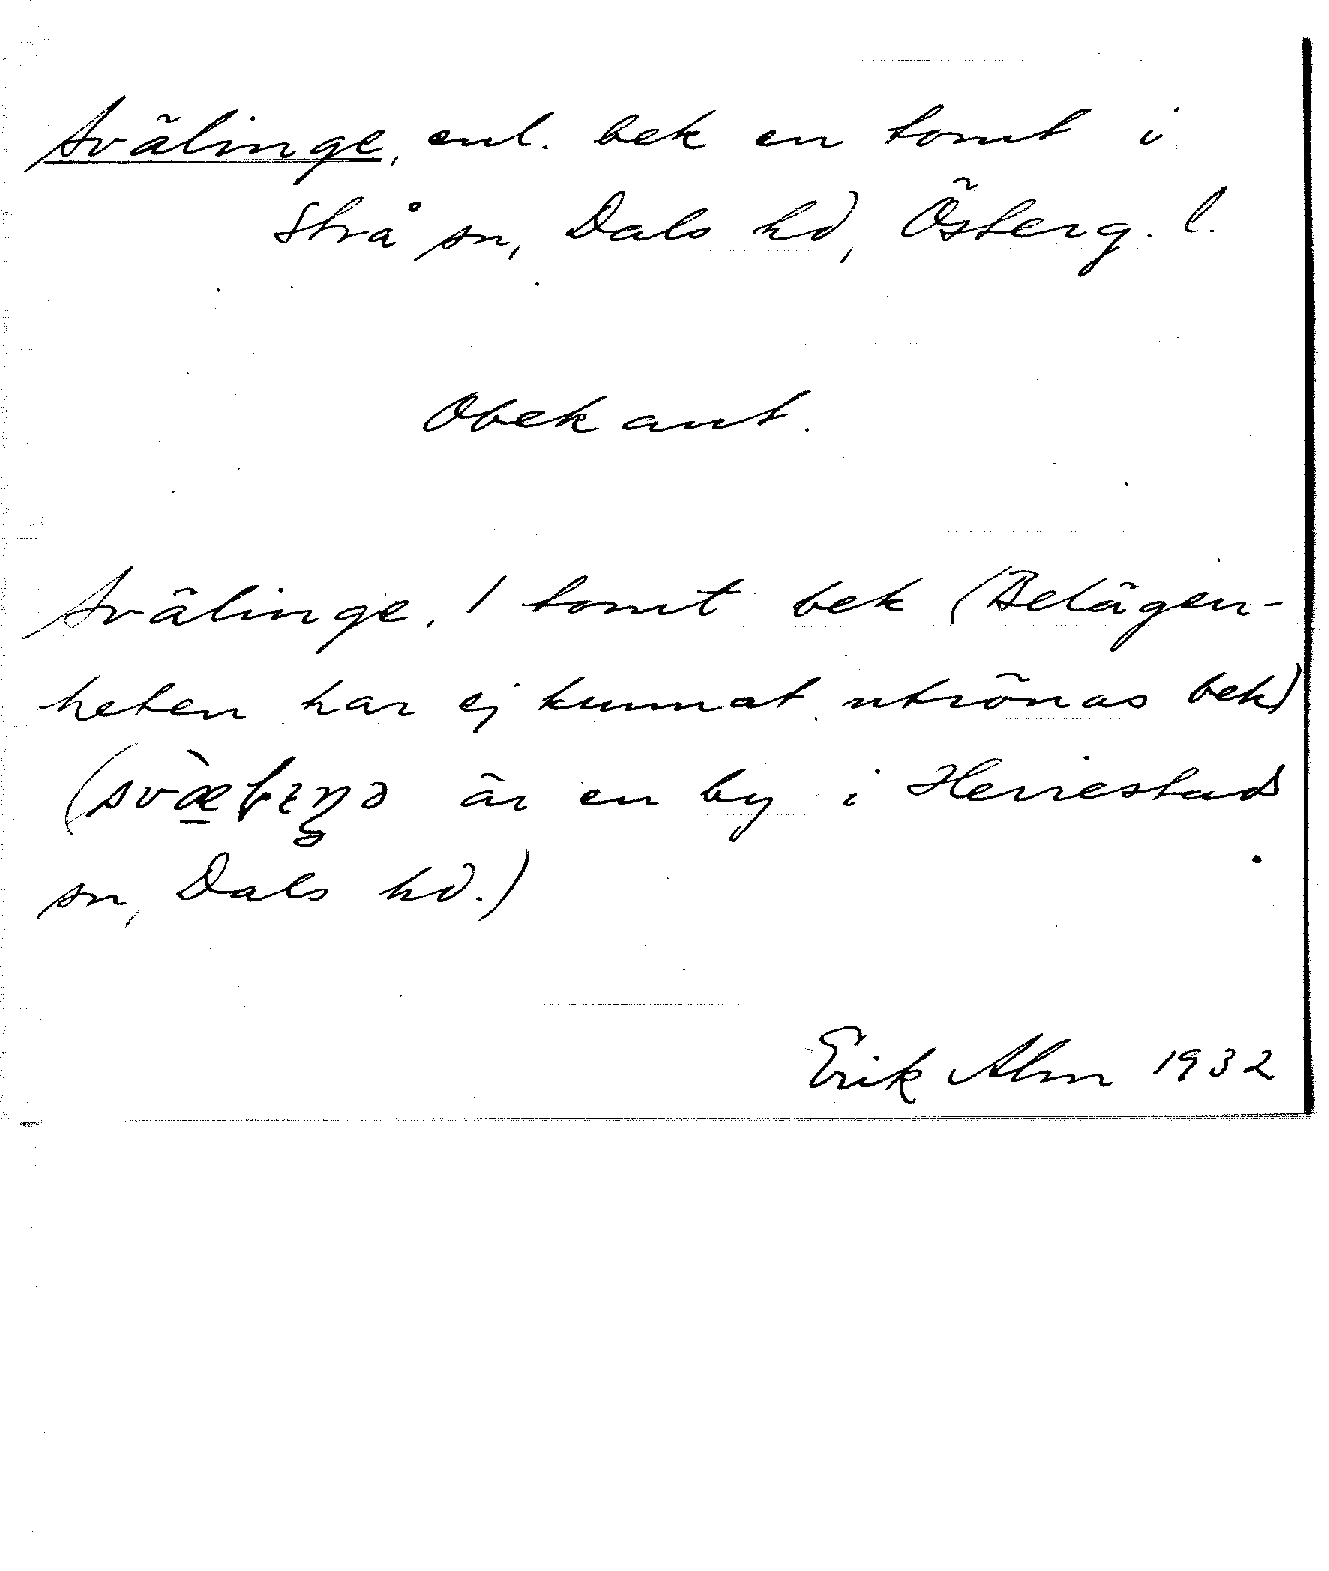 Svälinge, enl. bek en tomt i
Strå sn, Dals hd, Österg. l.
Obekant.
Svälinge, 1 tomt bek (Belägen-
heten har ej kunnat utrönas bek)
( är en by i Herrestad
sn, Dals hd.)
Erik Alm 1932